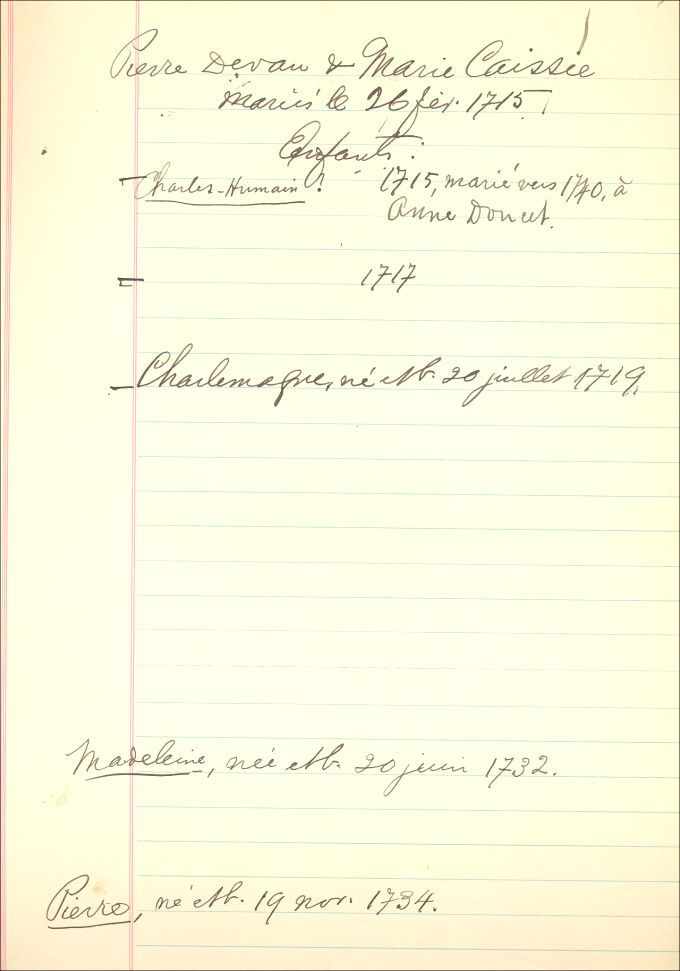 Pierre Devau & Marie Caissie
mariés le 26 fév. 1715
Enfants :
- Charles-Humain ? 1715, marié vers 1740, à
Anne Doucet.
- 1717
- Charlemagne, né et b. 20 juillet 1719.
Madeleine, née et b. 20 juin 1732.
Pierre, né et b. 19 nov. 1734.